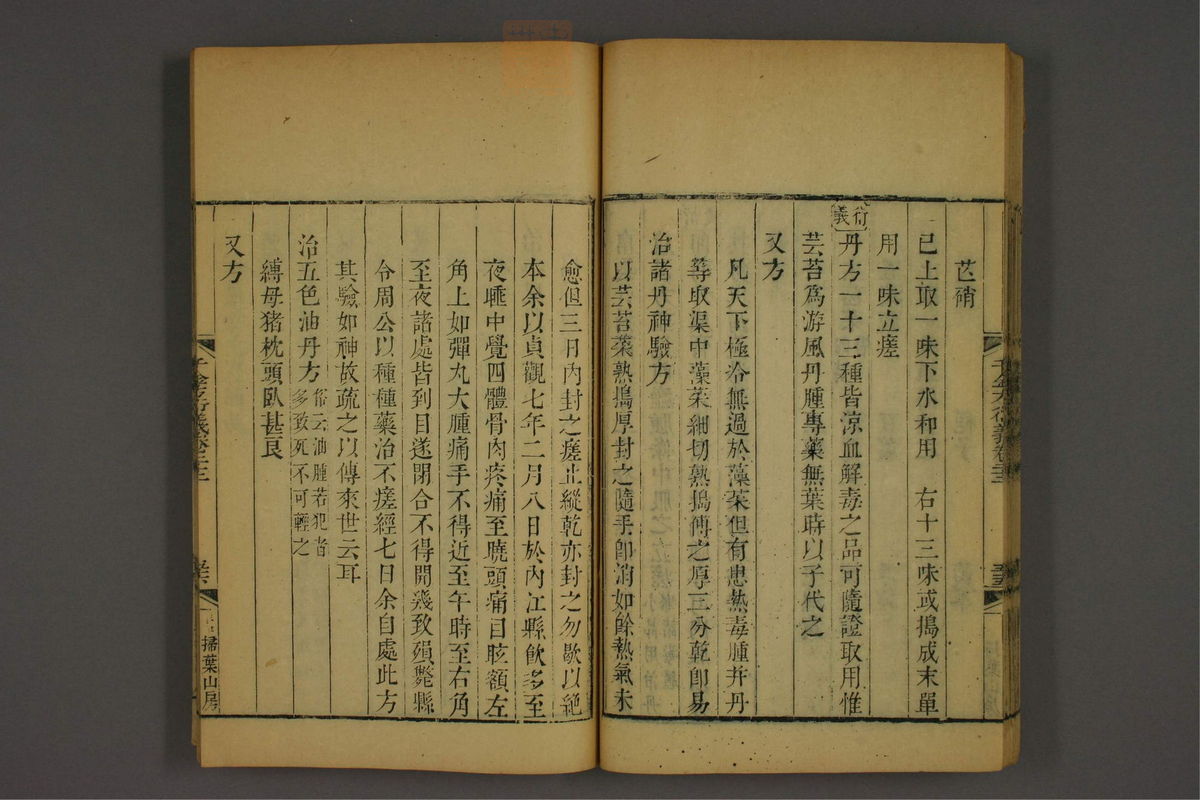 芒硝
已上取一味下水和用 右十三味或搗成末單
用一味立瘥
衍義
丹方一十三種皆涼血解毒之品可隨證取用惟
芸苔爲游風丹腫專藥無葉時以子代之
又方
凡天下極冷無過於藻菜但有患熱毒腫并丹
等取渠中藻菜細切熟搗傅之厚三分乾卽易
治諸丹神驗方
以芸苔菜熟搗厚封之隨手卽消如餘熱氣未
愈但三日內封之瘥止縱乾亦封之勿歇以絶
本余以貞觀七年二月八日於內江縣飮多至
夜睡中覺四體骨肉疼痛至曉頭痛目眩額左
角上如彈丸大腫痛手不得近至午時至右角
至夜諸處皆到目遂閉合不得開幾致殞斃縣
令周公以種種藥治不瘥經七日余自處此方
其驗如神故疏之以傳來世云耳
治五色油丹方俗云油腫若犯者多致死不可輕之
縛母猪枕頭臥甚良
又方
千金方衍義卷二十二
掃葉山房